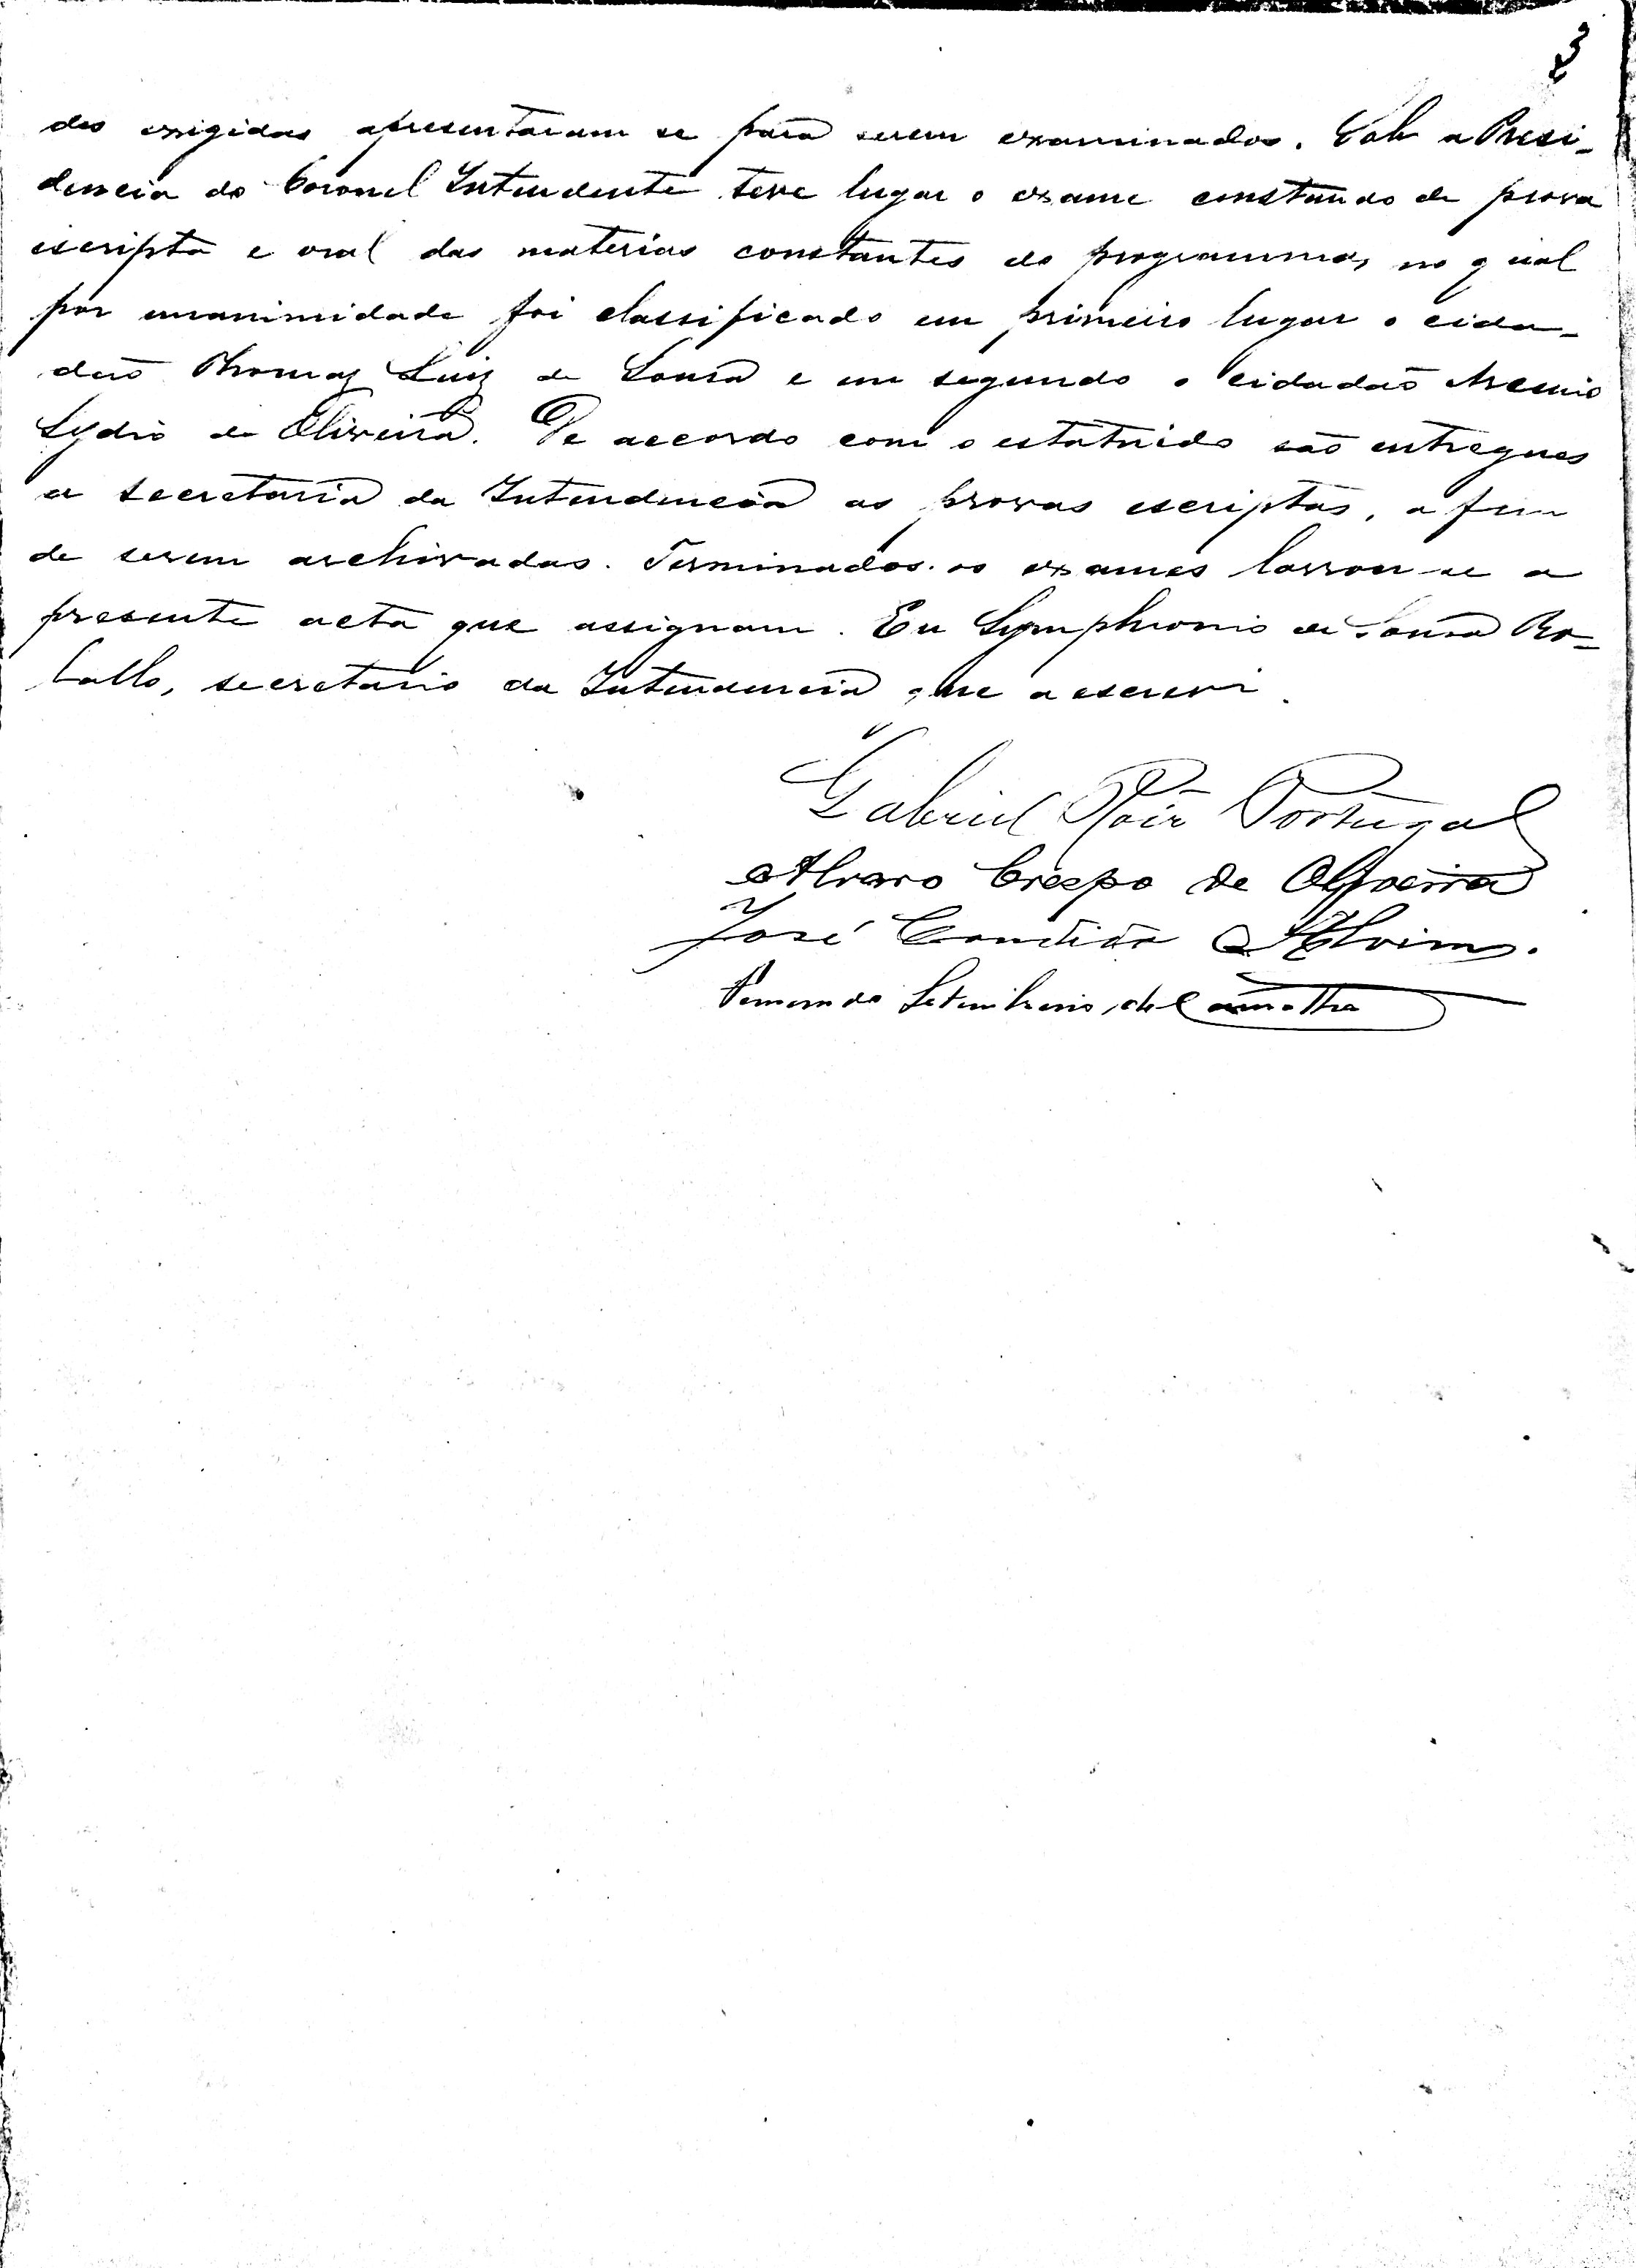 3
des exigidas apresentaram se para serem examinados. Sob a Presi-
dencia do Coronel Intendente teve lugar o exame constando de prova
escripta e oral das materias constantes do programma, no qual
por unanimidade foi classificado em primeiro lugar o cida-
dão Thomaz Luiz de Sousa e em segundo o cidadão
Lydio de Oliveira. De accordo com o estatuido são entregues
a secretaria da Intendencia as provas escriptas, a fim
de serem archivadas. Terminados os exames lavrou-se a
presente acta que assignam. Eu Symphronio de Sousa Ro-
ballo, secretario da Intendencia que a escrevi.
Gabriel Portugal
Alvaro Crespo de Oliveira
José Candido Alvim.